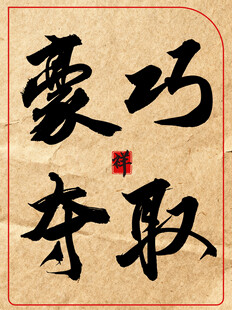 巧取
豪夺
祥